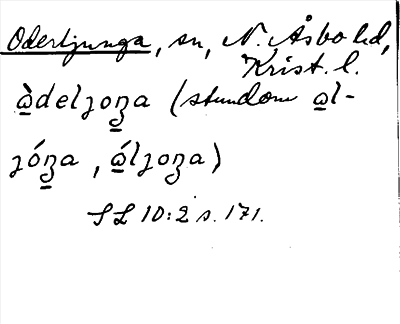 Oderljunga, sn, N. Åsbo hd,
Krist. l.
à̲delȷoŋ̲a (stundom a̲l-
ȷóŋ̲a, á̲lȷoŋa)
SL 10:2 s. 171.